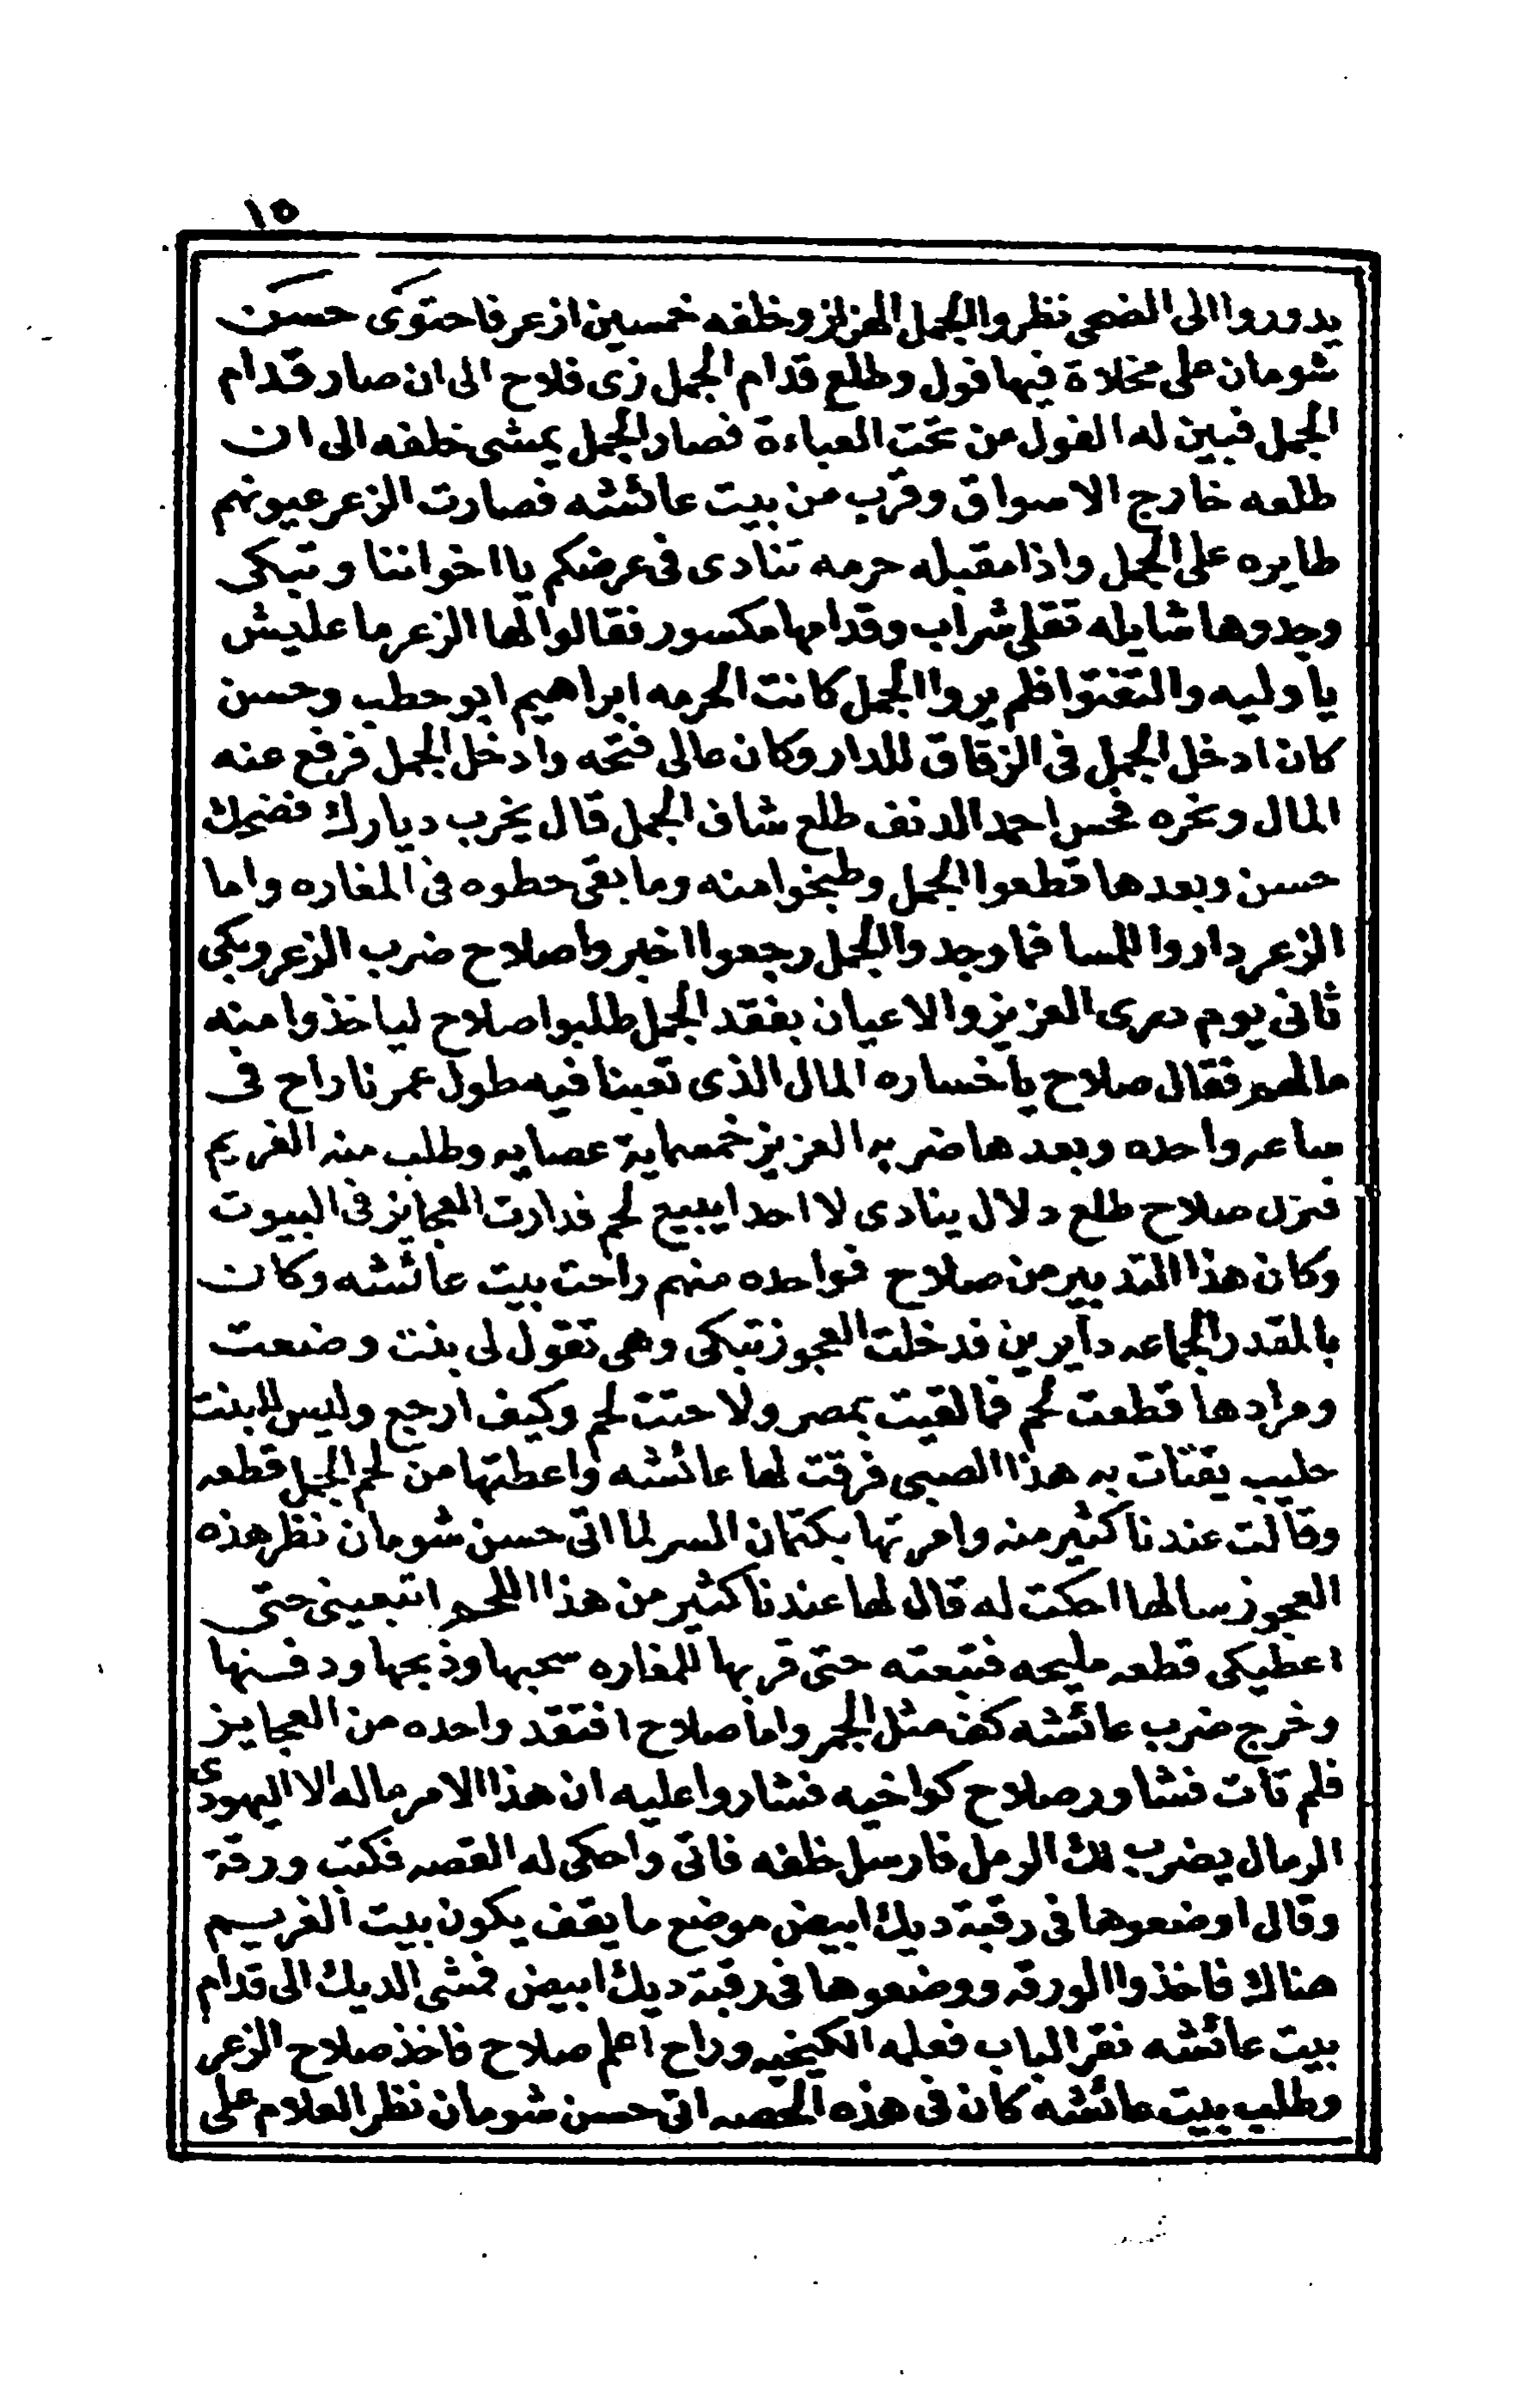 ١٥
يدوروا الى الضحى نظروا الجمل الهزلز وخلفه خمسين ازعر فاحتوى حسن
شومان على مخلاة فيها فول وطلع قدام الجمل زى فلاح الى ان صار قدام
الجمل فبين له الفول من تحت العباءة فصار الجمل يمشى خلفه الى ان
طلعه خارج الاسواق وقرب من بيت عائشه فصارت الزعر عيونهم
طايره على الجمل واذا مقبله حرمه تنادى فى عرضكم يا اخواننا وتبكى
وجدوها شايله تقلى شراب وقدامها مكسور فقالوا لها الزعر ما عليش
يا وليه والتفتوا فلم يروا الجمل كانت الحرمه ابراهيم ابو حطب وحسن
كان ادخل الجمل فى الزقاق للدار وكان مالى فتحه وادخل الجمل فرفع عنه
المال ونحره فحس احمد الدنف طلع شاف الجمل قال يخرب ديارك فضحك
حسن وبعدها قطعوا الجمل وطبخوا منه وما بقى حطوه فى المغاره واما
الزعر داروا للمسا فما وجدوا الجمل رجعوا اخبروا صلاح ضرب الزعر وبكى
ثانى يوم درى العزيز والاعيان بفقد الجمل طلبوا صلاح لياخذوا منه
مالهم فقال صلاح يا خساره المال الذى تعبنا فيه طول عمرنا راح فى
ساعه واحده وبعدها ضربه العزيز خمسماية عصايه وطلب منه الغريم
فنزل صلاح طلع دلال ينادى لا احدا يبيع لحم فدارت العجايز فى البيوت
وكان هذا التدبير من صلاح فواحده منهم راحت بيت عائشه وكان
بالمقدر الجماعه دآيرين فدخلت العجوز تبكى وهى تقول لى بنت وضعت
ومرادها قطعت لحم فما لقيت بمصر ولا حتت لحم وكيف ارجع وليس للبنت
حليب يقتات به هذا الصبى فرقت لها عائشه واعطتها من لحم الجمل قطعه
وقالت عندنا كثير منه وامرتها بكتمان السر لما اتى حسن شومان نظر هذه
العجوز سالها احكت له قال لها عندنا كثير من هذا اللحم اتبعينى حتى
اعطيكى قطعه مليحه فتبعته حتى قربها للمغاره سحبها وذبحها ودفسنها
وخرج ضرب عائشه كف مثل الجمر واما صلاح افتقد واحده من العجايز
فلم تات فشاور صلاح كواخيه فشاروا عليه ان هذا الامر ماله الا اليهودى
الرمال يضرب لك الرمل فارسل خلفه فاتى واحكى له القصه فكتب ورقة
وقال اوضعوها فى رقبة ديك ابيض موضع ما يقف يكون بيت الغريم
هناك فاخذوا الورقه ووضعوها فى رقبة ديك ابيض فمشى الديك الى قدام
بيت عائشه نقر الباب فعلمه الكيخيه وراح اعلم صلاح فاخذ صلاح الزعر
وطلب بيت عائشه كان فى هذه الحصه اتى حسن شومان نظر العلام على